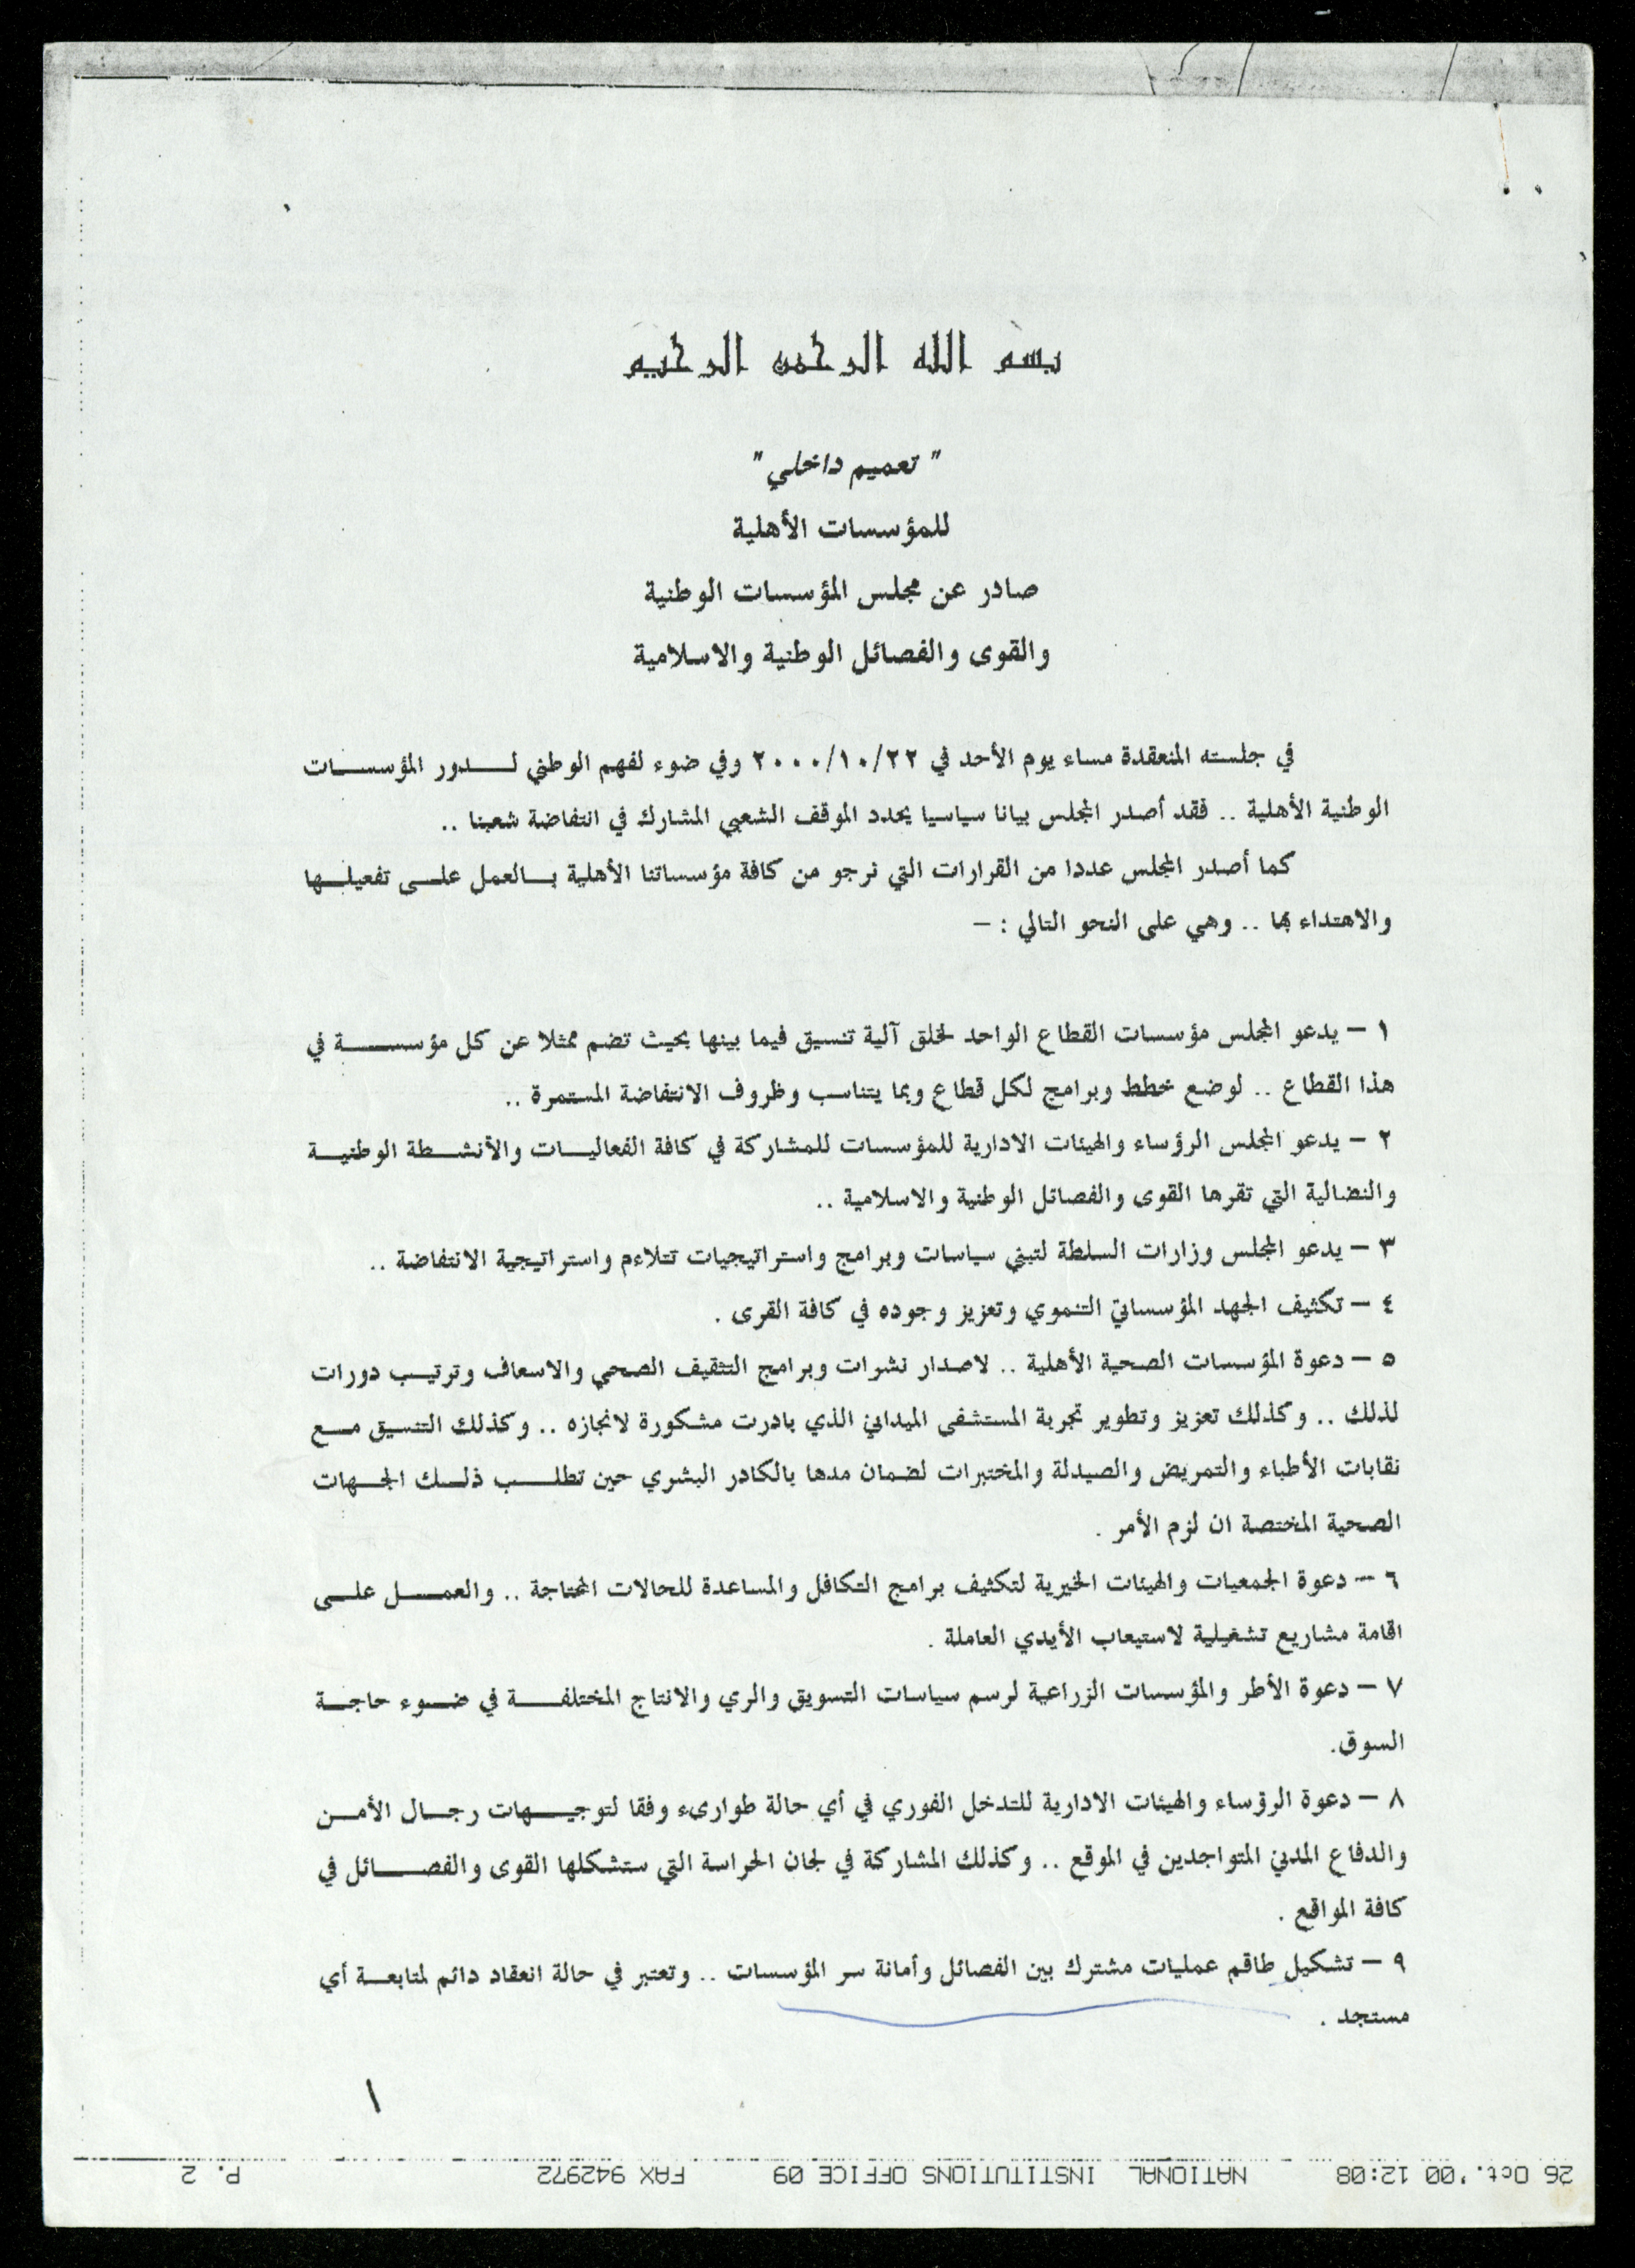 بسم الله الرحمن الرحيم
" تعميم داخلي "
للمؤسسات الأهلية
صادر عن مجلس المؤسسات الوطنية
والقوى والفصائل الوطنية والاسلامية
في جلسته المنعقدة مساء يوم الأحد في ٢٠٠٠/١٠/٢٢ وفي ضوء لفهم الوطني لـدور المؤسسـات
الوطنية الأهلية .. فقد أصدر المجلس بيانا سياسيا يحدد الموقف الشعبي المشارك في انتفاضة شعبنا ..
كما أصدر المجلس عددا من القرارات التي نرجو من كافة مؤسساتنا الأهلية بـالعمل علـى تفعيلـها
والاهتداء بها .. وهي على النحو التالي : –
١ – يدعو المجلس مؤسسات القطاع الواحد لخلق آلية تنسيق فيما بينها بحيث تضم ممثلا عن كل مؤسسـة في
هذا القطاع .. لوضع خطط وبرامج لكل قطاع وبما يتناسب وظروف الانتفاضة المستمرة ..
٢ – يدعو المجلس الرؤساء والهيئات الادارية للمؤسسات للمشاركة في كافة الفعاليـات والأنشـطة الوطنيـة
والنضالية التي تقرها القوى والفصائل الوطنية والاسلامية ..
٣ – يدعو المجلس وزارات السلطة لتبني سياسات وبرامج واستراتيجيات تتلاءم واستراتيجية الانتفاضة ..
٤ – تكثيف الجهد المؤسساتي التنموي وتعزيز وجوده في كافة القرى .
٥ – دعوة المؤسسات الصحية الأهلية .. لاصدار نشرات وبرامج التثقيف الصحي والاسعاف وترتيـب دورات
لذلك .. وكذلك تعزيز وتطوير تجربة المستشفى الميداني الذي بادرت مشكورة لانجازه .. وكذلك التنسيق مـع
نقابات الأطباء والتمريض والصيدلة والمختبرات لضمان مدها بالكادر البشري حين تطلـب ذلـك الجـهات
الصحية المختصة ان لزم الأمر .
٦ – دعوة الجمعيات والهيئات الخيرية لتكثيف برامج التكافل والمساعدة للحالات المحتاجة .. والعمـل علـى
اقامة مشاريع تشغيلية لاستيعاب الأيدي العاملة .
٧ – دعوة الأطر والمؤسسات الزراعية لرسم سياسات التسويق والري والانتاج المختلفـة في ضـوء حاجـة
السوق.
٨ – دعوة الرؤساء والهيئات الادارية للتدخل الفوري في أي حالة طوارىء وفقا لتوجيـهات رجـال الأمـن
والدفاع المدني المتواجدين في الموقع .. وكذلك المشاركة في لجان الحراسة التي ستشكلها القوى والفصـائل في
كافة المواقع .
٩ – تشكيل طاقم عمليات مشترك بين الفصائل وأمانة سر المؤسسات .. وتعتبر في حالة انعقاد دائم لمتابعـة أي
مستجد .
١
26 Oct.'00 12:08 NATIONAL INSTITUTIONS OFFICE 09 FAX 942972 P. 2